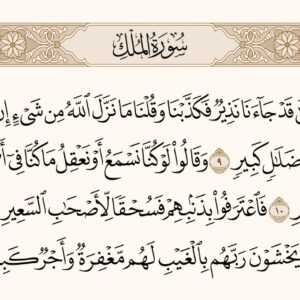 سُورَةُ المُلْكِ
قَدْ جَآءَنَا نَذِيرٌ فَكَذَّبْنَا وَقُلْنَا مَا نَزَّلَ ٱللَّهُ مِن شَىْءٍ إِنْ
ضَلَٰلٍ كَبِيرٍ ٩ وَقَالُوا۟ لَوْ كُنَّا نَسْمَعُ أَوْ نَعْقِلُ مَا كُنَّا فِىٓ
١٠ فَٱعْتَرَفُوا۟ بِذَنۢبِهِمْ فَسُحْقًا لِّأَصْحَٰبِ ٱلسَّعِيرِ
يَخْشَوْنَ رَبَّهُم بِٱلْغَيْبِ لَهُم مَّغْفِرَةٌ وَأَجْرٌ